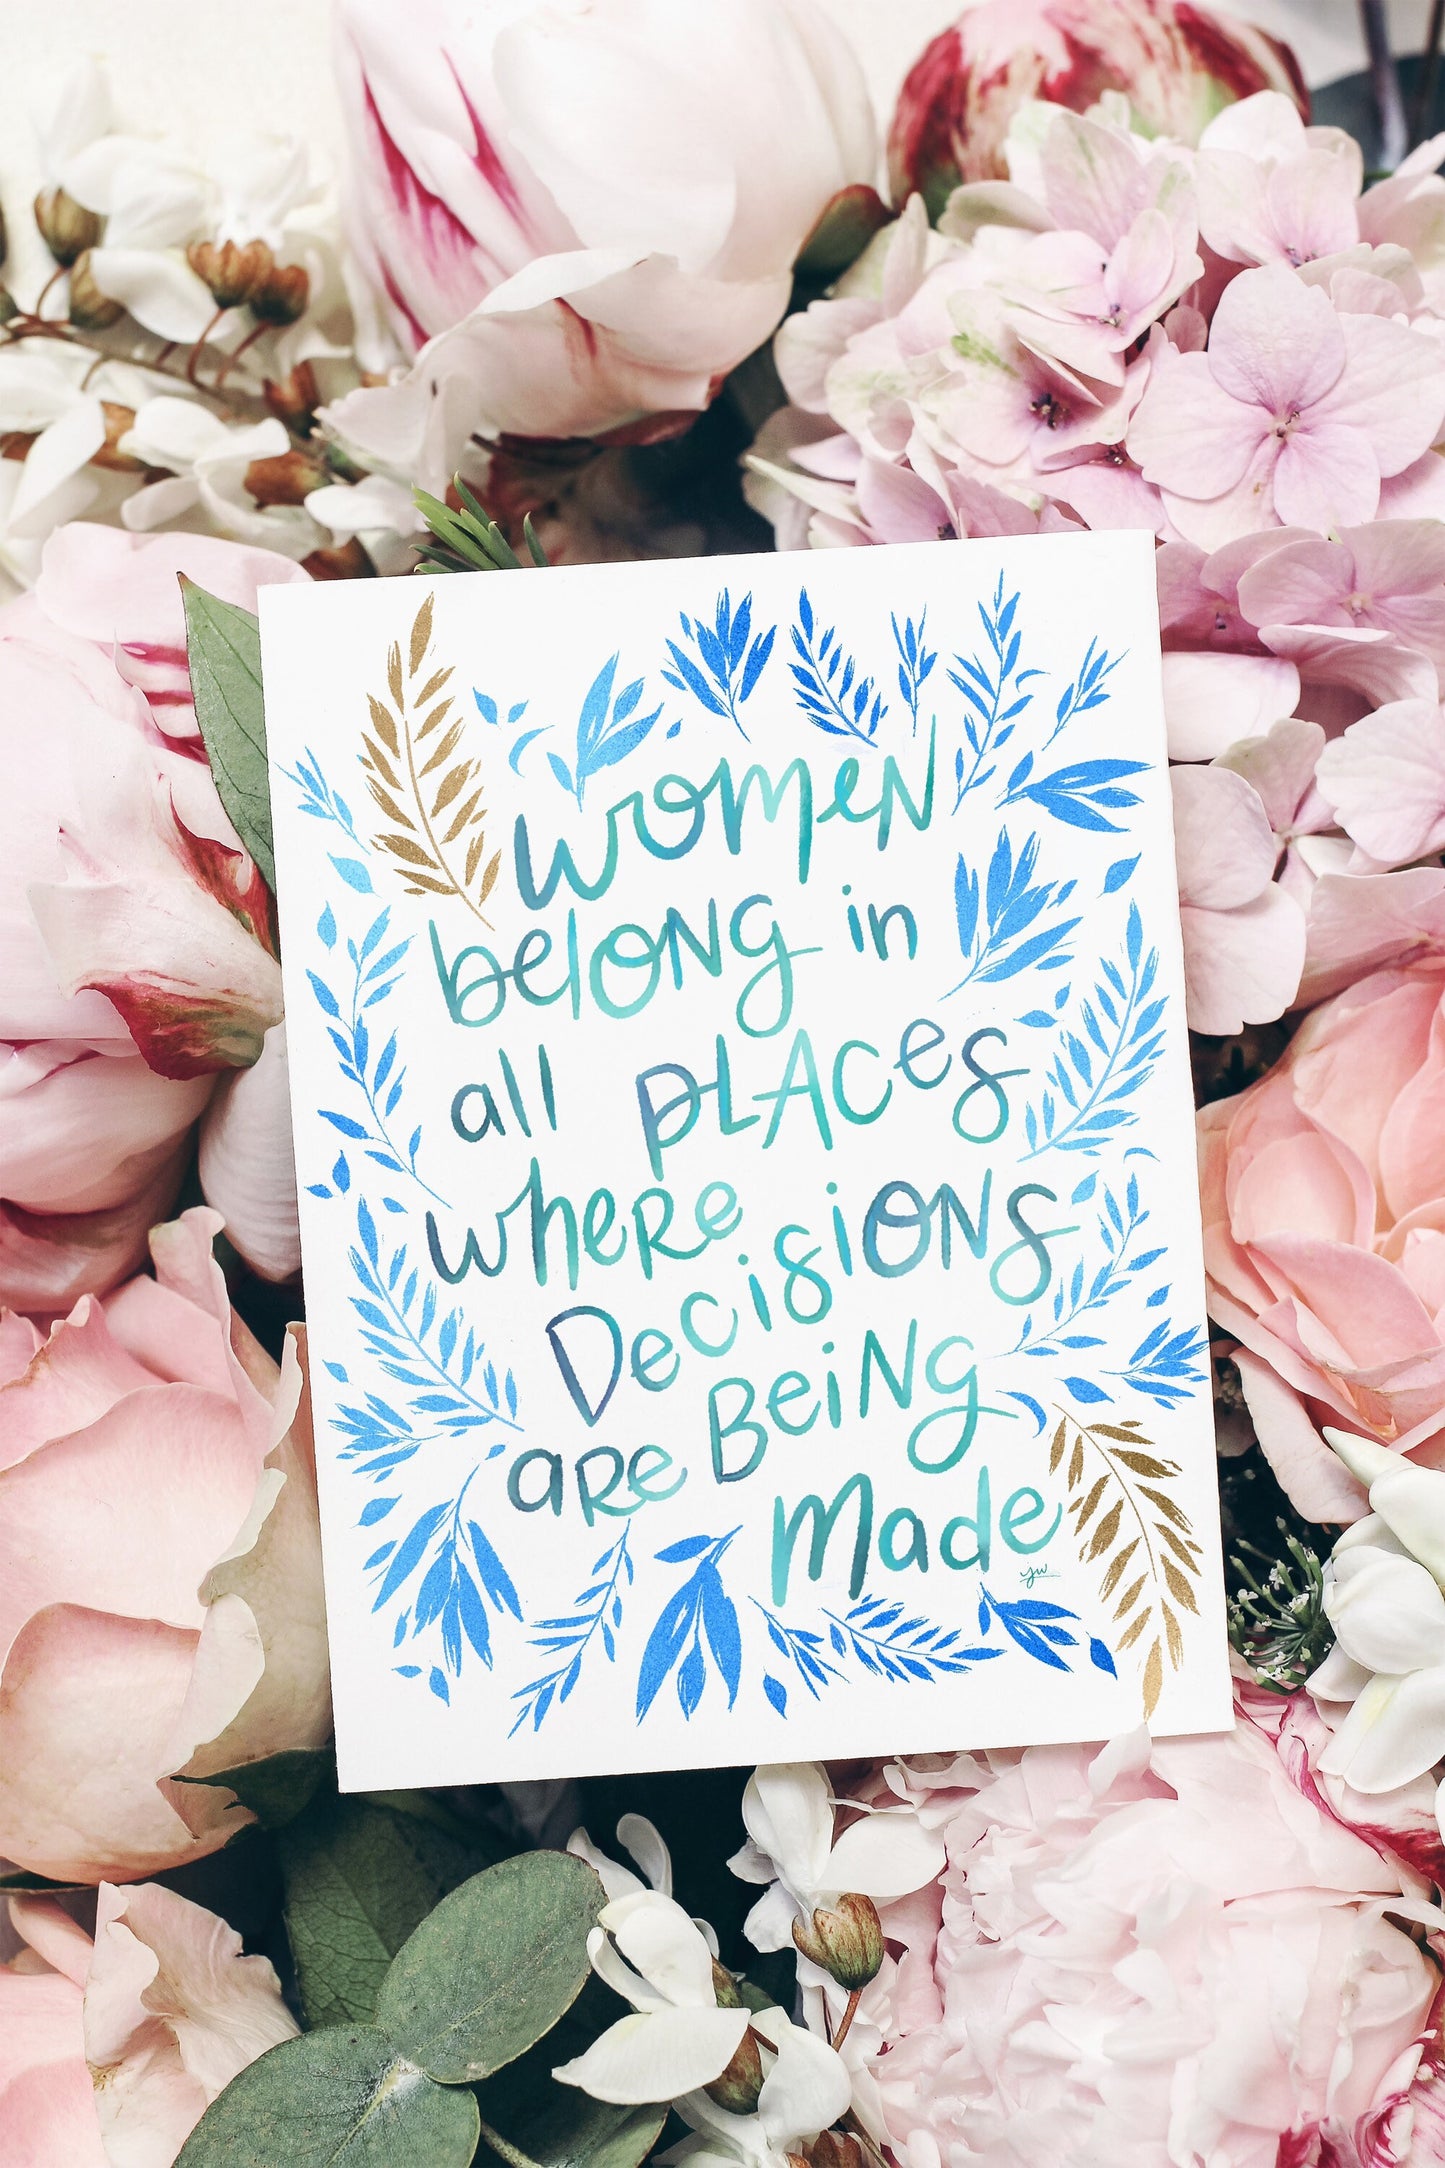 women
belong in
all places
where
Decisions
are Being
Made
yw